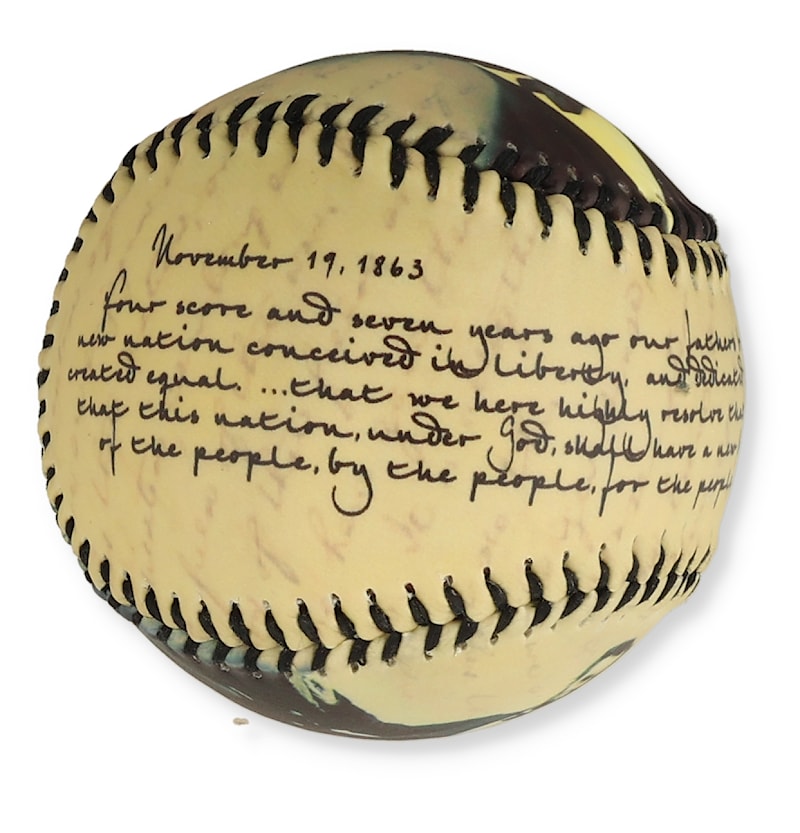 November 19, 1863
four score and seven years ago our fathers
new nation conceived in liberty, and dedicated
created equal. ...that we here highly resolve that
that this nation, under God, shall have a new
of the people, by the people, for the people